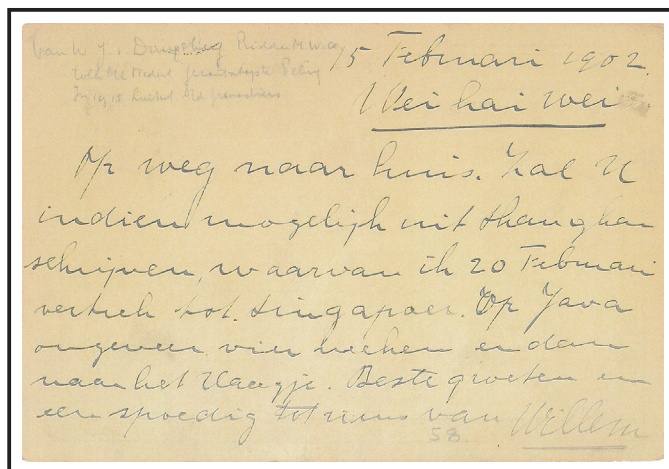 15 Februari 1902.
Wei hai wei
Op weg naar huis. Zal U
indien mogelijk uit Shanghai
schrijven, waarvan ik 20 Februari
vertrek tot Singapoer. Op Java
ongeveer vier weken en dan
naar het Haagje. Beste groeten en
een spoedig tot ziens van Willem
58.